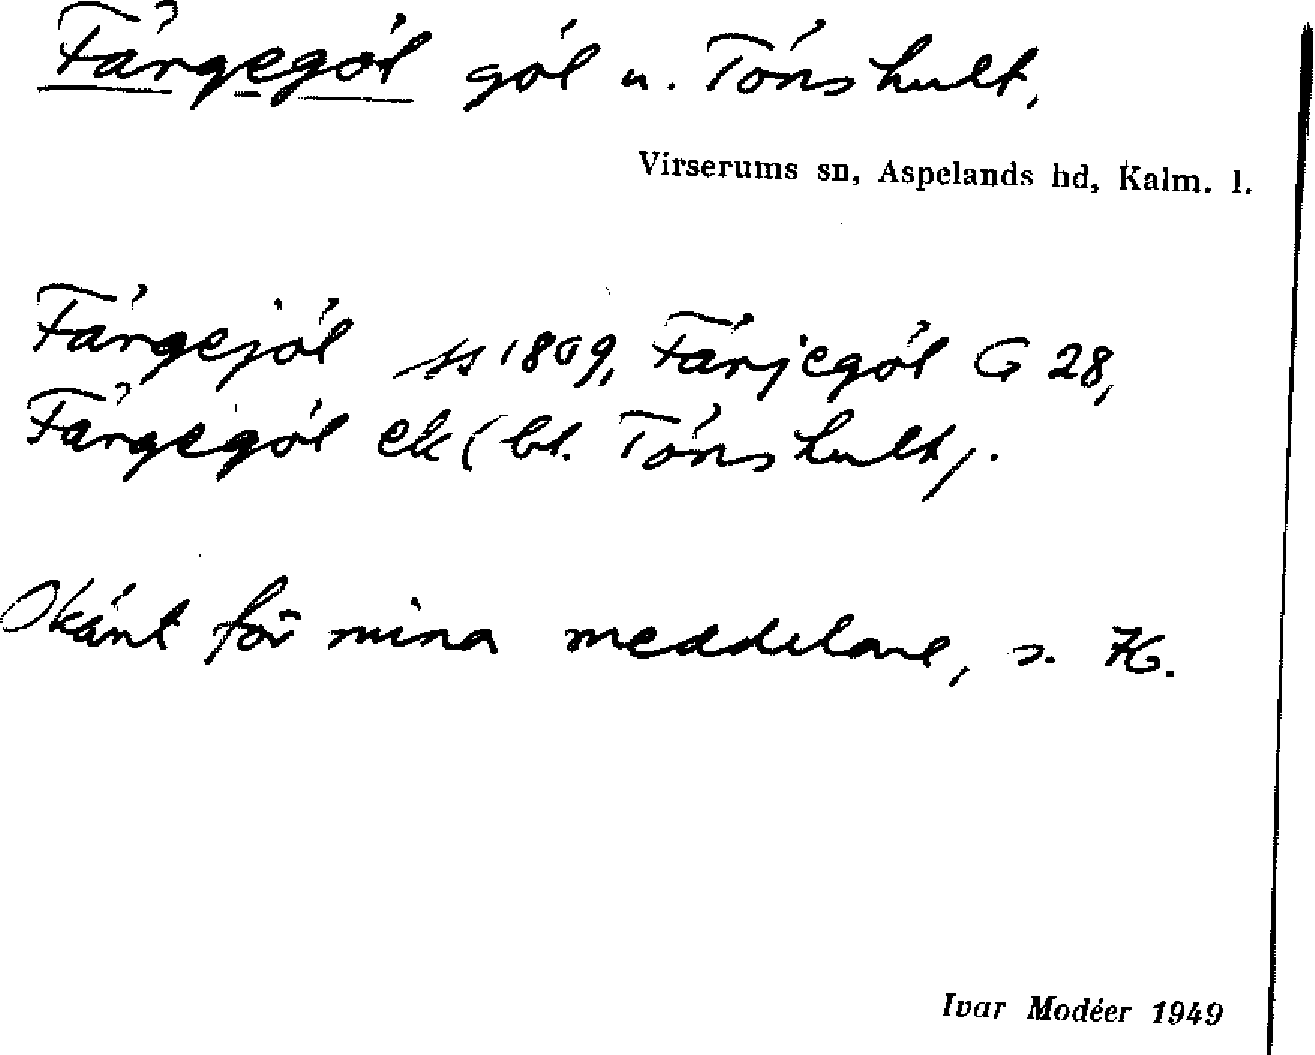 Färgegöl göl u. Tönshult.
Virserums sn, Aspelands hd, Kalm. l.
Färgejöl ss 1809, Färjegöl G 28,
Färgegöl ek (bl. Tönshult).
Okänt för mina meddelare, s. K.
Ivar Modéer 1949